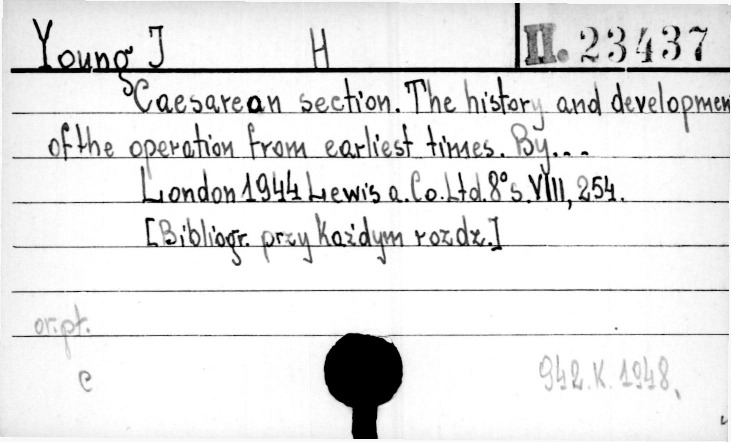 Young J H II. 23437
Caesarean section. The history and developmen
of the operation from earliest times. By...
London 1944 Lewis a. Co. Ltd. 8° s. VIII, 254.
[Bibliogr. przy każdym rozdz.]
or. pł.
c 942. K. 1948.